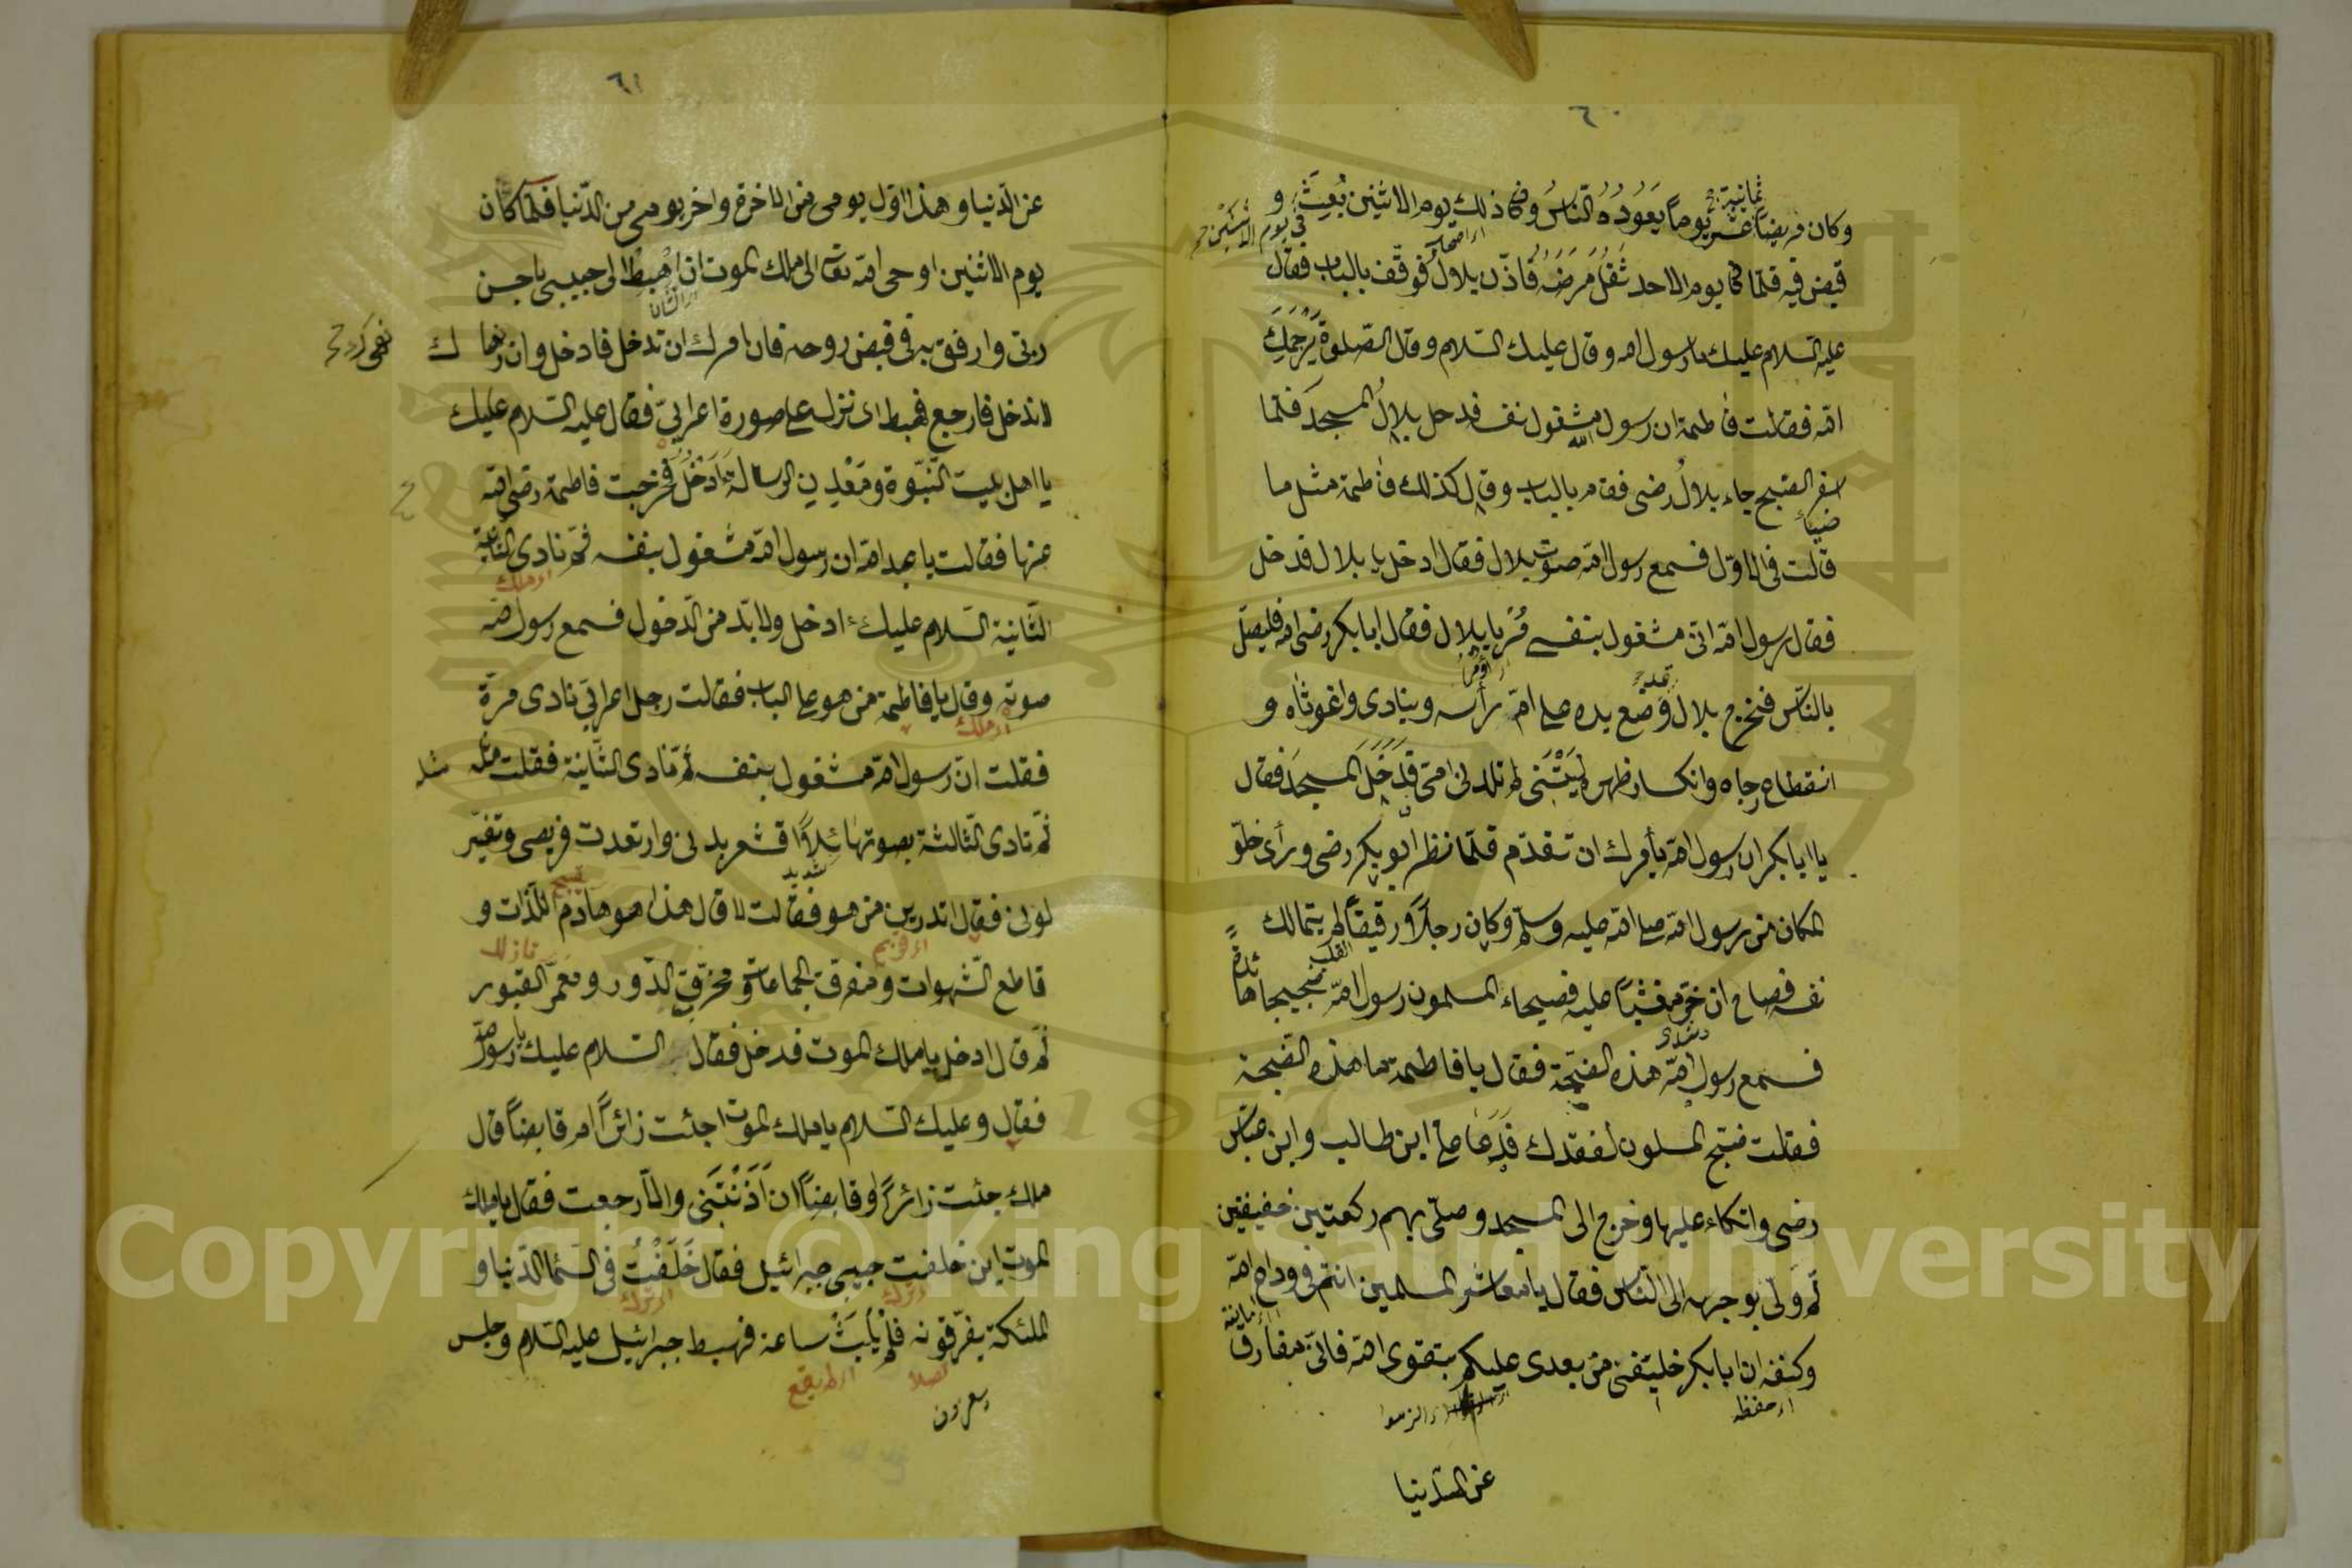 ٦٠
ثمانية
وكان مريضاً عشر يوماً يَعُودُهُ النّاسُ وكا ذلك يوم الاثنين بُعِثَ و
في يوم الاثنين
قبض فيه فلمّا كا يوم الاحد ثَقُلَ مَرَضُهُ فاذّن بلالٌ فوقف بالباب فقال
عليه السلام عليك يا رسول الله وقال عليك السلام وقال الصّلوة يَرْحَمُكِ
الله فقالت فاطمة ان رسول الله مشغول بنفسه فدخل بلالٌ المسجدَ فلمّا
اسفر الصّبح جاء بلالٌ رضى فقام بالباب وقال كذلك فاطمة مثل ما
ضياء
قالت في الاوّل فسمع رسول الله صوت بلال فقال ادخل يا بلال فدخل
فقال رسول الله انّى مشغول بنفسى مُرْ يا بلال فقال ابا بكر رضى الله فليصلّ
بالنّاس فخرج بلال وضع يده على امّ رأسه وينادى واغوثاه و
انقطاع رجاه وانكسار ظهره لَيْتَنى لم تلدنى امّى فدَخَلَ المسجدَ فقال
يا ابا بكر ان رسول الله يأمرك ان تقدّم فلمّا نظر ابو بكر رضى ورأى خلوّ
المكان من رسول الله صلى الله عليه وسلّم وكان رجلاً رقيقاً لم يتمالك
نفسه فصاح ان خرّ مغشيّاً عليه فصيحاء المسلمون رسول الله
فسمع رسول الله هذه الضّيحة فقال يا فاطمة ما هذه الضّيحة
فقلت ضبّح المسلمون لفقدك فدعا على ابن طالب وابن عبّاس
رضى واتكاء عليها وخرج الى المسجد وصلّى بهم ركعتين خفيفتين
ثم ولّى بوجهه الى النّاس فقال يا معاشر المسلمين انتم في وداع الله
وكنفه ان ابا بكر خليفتى من بعدى عليكم بتقوى الله فانّى مفارق
اى حفظه
عن الدّنيا
٦١
عن الدّنيا وهذا اوّل يومى من الاخرة واخر يومى من الدّنيا فلمّا كان
يوم الاثنين اوحى الله تعالى الى ملك الموت ان اهْبِطْ الى حبيبى باحسن
ربّى وارفق به فى قبض روحه فان امرك ان تدخل فادخل وان نهاك
لا تدخل فارجع فهبط اى نزل على صورة اعرابىّ فقال عليه السّلام عليك
يا اهل بيت النّبوّة ومَعْدِن الرسالة ءَاَدْخُلُ فخرجت فاطمة رضى الله
عنها فقالت يا عبد الله ان رسول الله مشغول بنفسه ثمّ نادى الثانية
الثّانية السّلام عليك ء ادخل ولا بدّ من الدّخول فسمع رسول الله
صوته وقال يا فاطمة من هو على الباب فقالت رجل اعرابىّ نادى مرّة
فقلت انّ رسول الله مشغول بنفسه ثمّ نادى الثّانية فقلت مثله
ثمّ نادى الثّالثة بصوت هائلاً اقشعر بدنى وارتعدت فريصى وتغيّر
شديد
لونى فقال اتدرين من هو فقالت لا قال هذا هو هاذم اللّذات و
قاطع الشّهوات ومفرق الجماعات ومخرّب الدّور ومعمّر القبور
ثمّ قال ادخل يا ملك الموت فدخل فقال السّلام عليك يا رسول الله
فقال وعليك السّلام يا ملك الموت اجئت زائراً ام قابضاً قال
ملك جئت زائراً وقابضاً ان اَذَنْتَنى والّا رجعت فقال يا ملك
الموت اين خلفت حبيبى جبرائيل فقال خَلَفْتُ فى السّماء الدّنيا و
الملئكة يفرّقونه فلم يَلْبَثْ ساعة فهبط جبرائيل عليه السّلام وجلس